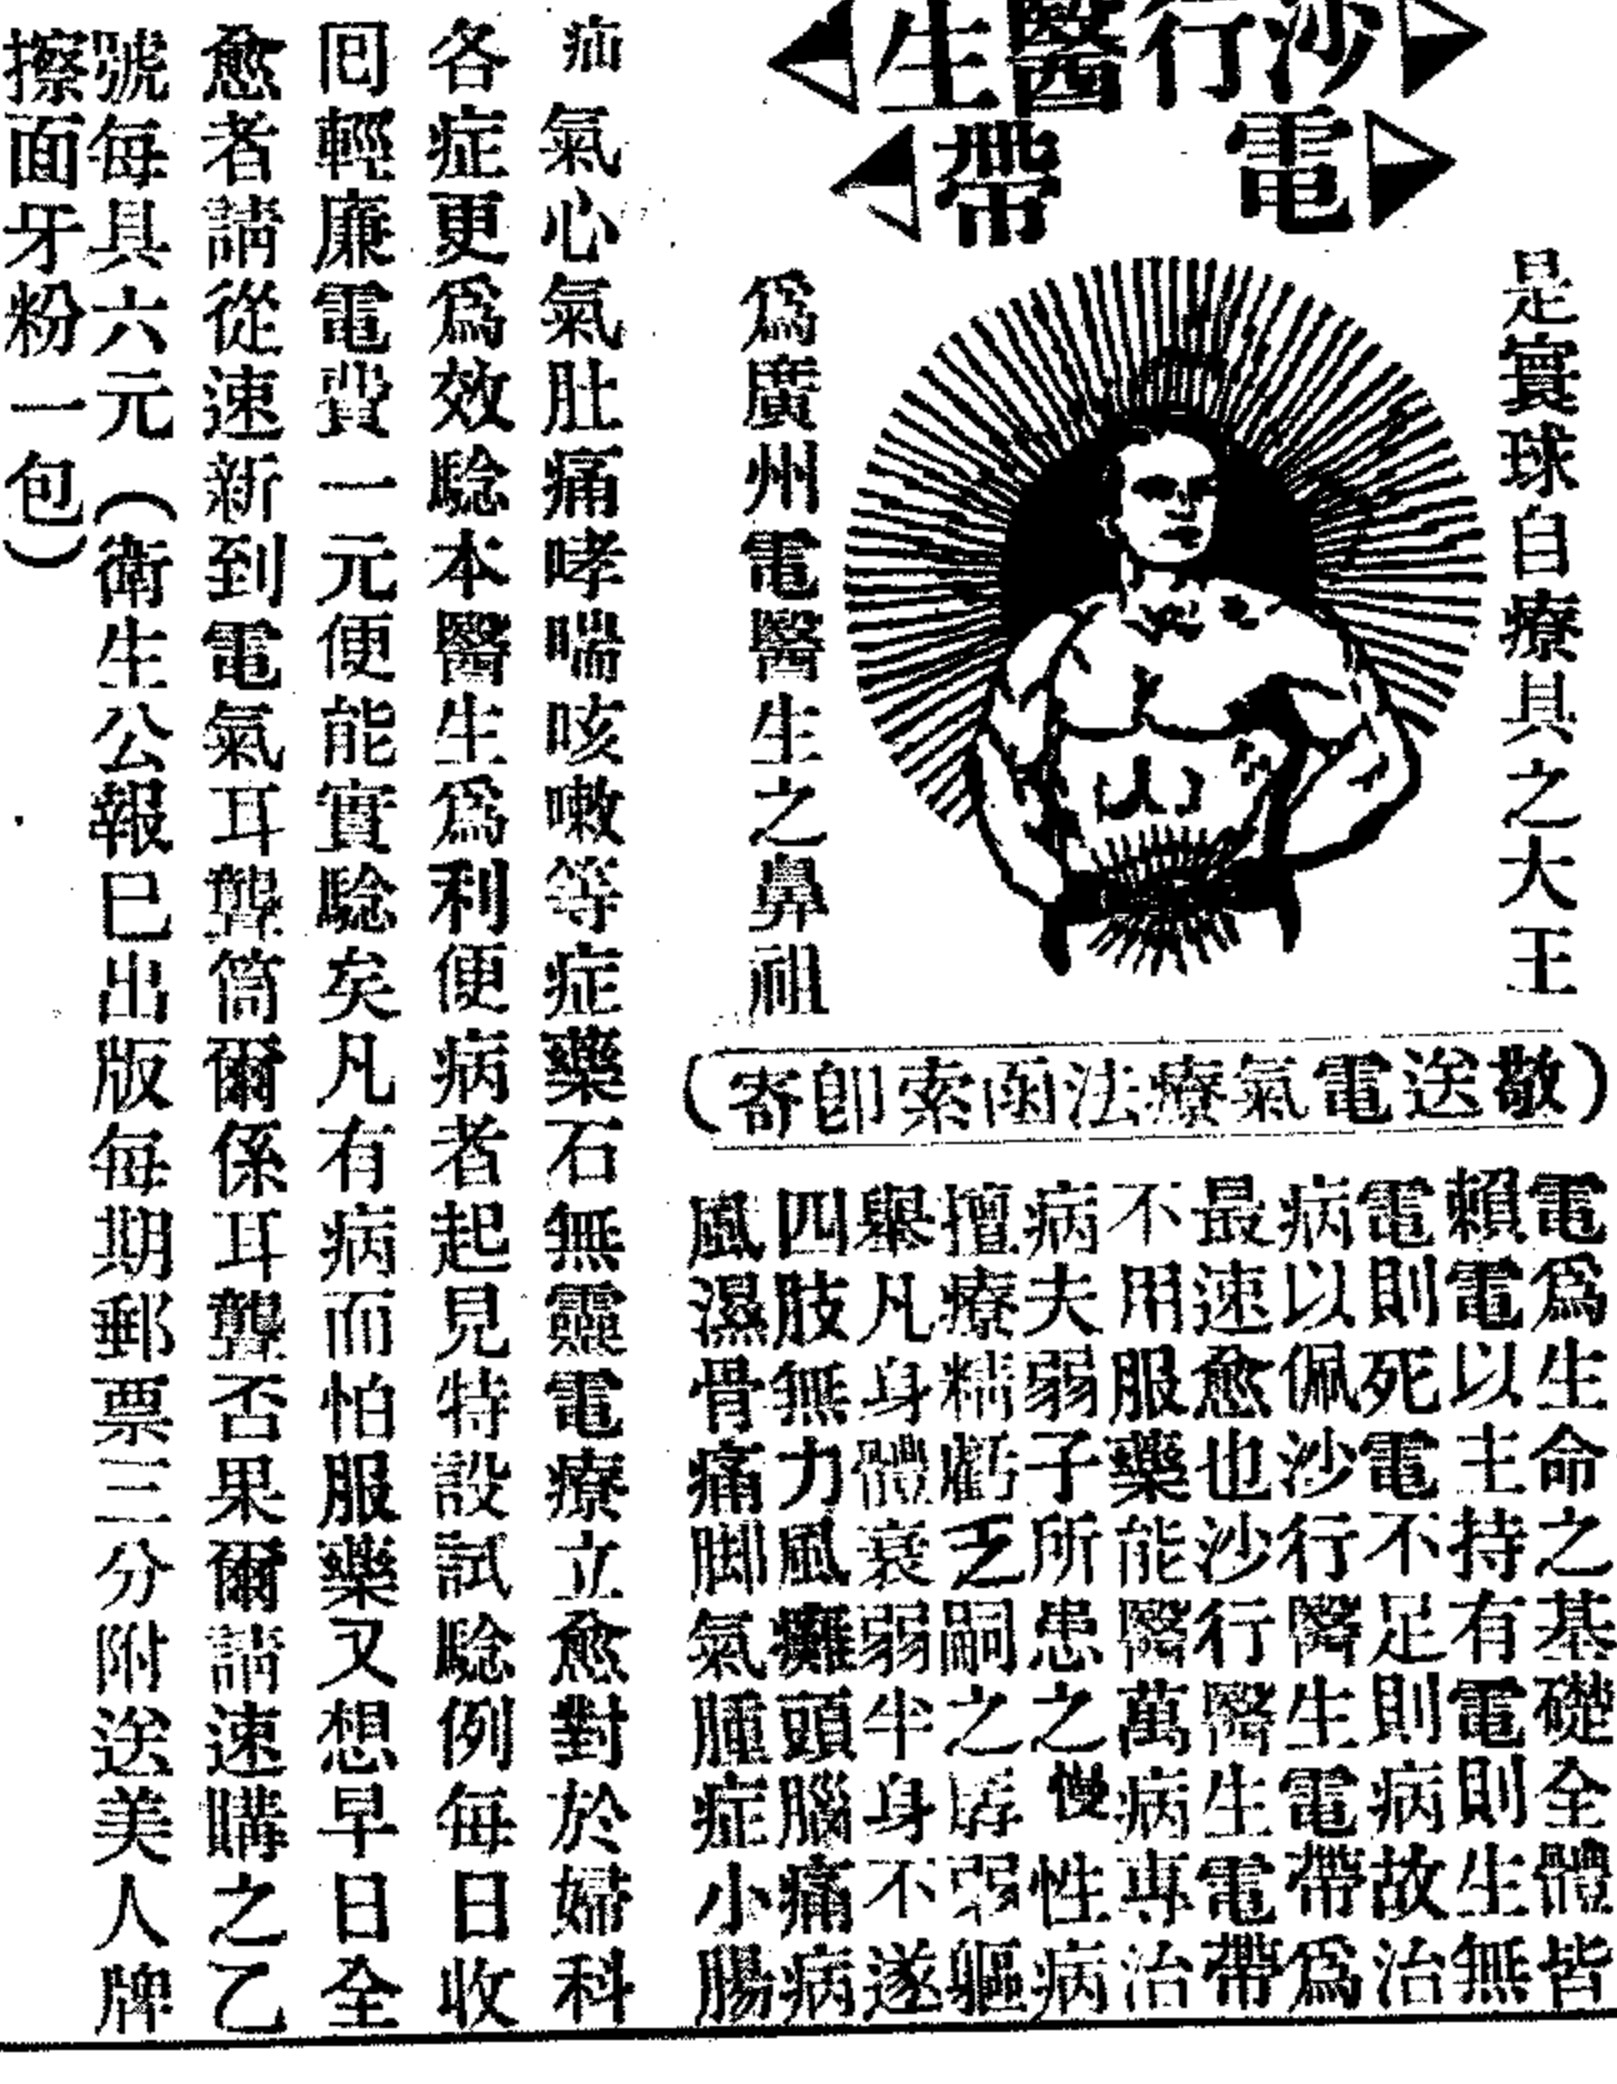 沙行醫生
電帶
是寰球自療具之大王
為廣州電醫生之鼻祖
(敬送電氣療法函索即寄)
電爲生命之基礎全體皆
賴電以主持有電則生無
電則死電不足則病故治
病以佩沙行醫生電帶爲
最速愈也沙行醫生電帶
不用服藥能醫萬病專治
病夫弱子所患之慢性病
擅療精虧乏嗣之孱弱軀
舉凡身體衰弱半身不遂
四肢無力風癱頭腦痛病
風濕骨痛脚氣腫症小腸
疝氣心氣肚痛哮喘咳嗽等症藥石無靈電療立愈對於婦科
各症更爲效騐本醫生爲利便病者起見特設試騐例每日收
囘輕廉電費一元便能實騐矣凡有病而怕服藥又想早日全
愈者請從速新到電氣耳聾筒爾係耳聾否果爾請速購之乙
號每具六元(衛生公報已出版每期郵票三分附送美人牌
擦面牙粉一包)